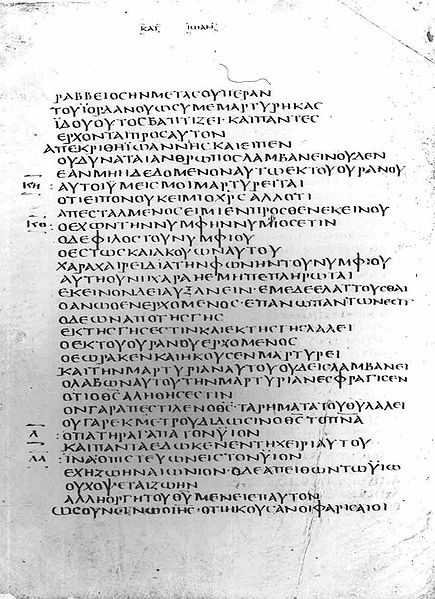 ΚΑΤ ΙΩΑΝ
ΡΑΒΒΕΙΟϹΗΝΜΕΤΑϹΟΥΠΕΡΑΝ
ΤΟΥΪΟΡΔΑΝΟΥΩϹΥΜΕΜΑΡΤΥΡΗΚΑϹ
ΪΔΟΥΟΥΤΟϹΒΑΠΤΙΖΕΙ·ΚΑΙΠΑΝΤΕϹ
ΕΡΧΟΝΤΑΙΠΡΟϹΑΥΤΟΝ
ΑΠΕΚΡΙΘΗΪΩΑΝΝΗϹΚΑΙΕΙΠΕΝ
ΟΥΔΥΝΑΤΑΙΑΝΘΡΩΠΟϹΛΑΜΒΑΝΕΙΝΟΥΔΕΝ
ΕΑΝΜΗΗΔΕΔΟΜΕΝΟΝΑΥΤΩΕΚΤΟΥΟΥΡΑΝΟΥ
:ΑΥΤΟΙΫΜΕΙϹΜΟΙΜΑΡΤΥΡΕΙΤΑΙ
ΟΤΙΕΙΠΟΝΟΥΚΕΙΜΙΟΧΡϹΑΛΛΟΤΙ
ΑΠΕϹΤΑΛΜΕΝΟϹΕΙΜΙΕΝΠΡΟϹΘΕΝΕΚΕΙΝΟΥ
:ΟΕΧΩΝΤΗΝΝΥΜΦΗΝΝΥΜΦΙΟϹΕϹΤΙΝ
ΟΔΕΦΙΛΟϹΤΟΥΝΥΜΦΙΟΥ
ΟΕϹΤΩϹΚΑΙΑΚΟΥΩΝΑΥΤΟΥ
ΧΑΡΑΧΑΙΡΕΙΔΙΑΤΗΝΦΩΝΗΝΤΟΥΝΥΜΦΙΟΥ
ΑΥΤΗΟΥΝΗΧΑΡΑΗΕΜΗΠΕΠΛΗΡΩΤΑΙ
ΕΚΕΙΝΟΝΔΕΙΑΥΞΑΝΕΙΝ·ΕΜΕΔΕΕΛΑΤΤΟΥϹΘΑΙ
ΟΑΝΩΘΕΝΕΡΧΟΜΕΝΟϹ·ΕΠΑΝΩΠΑΝΤΩΝΕϹΤΙ
ΟΔΕΩΝΑΠΟΤΗϹΓΗϹ
ΕΚΤΗϹΓΗϹΕϹΤΙΝΚΑΙΕΚΤΗϹΓΗϹΛΑΛΕΙ
ΟΕΚΤΟΥΟΥΡΑΝΟΥΕΡΧΟΜΕΝΟϹ
ΟΕΩΡΑΚΕΝΚΑΙΗΚΟΥϹΕΝΜΑΡΤΥΡΕΙ
ΚΑΙΤΗΝΜΑΡΤΥΡΙΑΝΑΥΤΟΥΟΥΔΕΙϹΛΑΜΒΑΝΕΙ
ΟΛΑΒΩΝΑΥΤΟΥΤΗΝΜΑΡΤΥΡΙΑΝΕϹΦΡΑΓΙϹΕΝ
ΟΤΙΟΘϹΑΛΗΘΗϹΕϹΤΙΝ
ΟΝΓΑΡΑΠΕϹΤΙΛΕΝΟΘϹ·ΤΑΡΗΜΑΤΑΤΟΥΘΥΛΑΛΕΙ
ΟΥΓΑΡΕΚΜΕΤΡΟΥΔΙΔΩϹΙΝΟΘϹΤΟΠΝΑ
Λ :ΟΠΑΤΗΡΑΓΑΠΑΤΟΝΫΙΟΝ
ΚΑΙΠΑΝΤΑΕΔΩΚΕΝΕΝΤΗΧΕΙΡΙΑΥΤΟΥ
ΛΑ :ΪΝΑΟΠΙϹΤΕΥΩΝΕΙϹΤΟΝΫΙΟΝ
ΕΧΗΖΩΗΝΑΙΩΝΙΟΝ·ΟΔΕΑΠΕΙΘΩΝΤΩΫΙΩ
ΟΥΚΟΨΕΤΑΙΖΩΗΝ
ΑΛΛΗΟΡΓΗΤΟΥΘΥΜΕΝΕΙΕΠΑΥΤΟΝ
ΩϹΟΥΝΕΓΝΩΟΙΗϹ·ΟΤΙΗΚΟΥϹΑΝΟΙΦΑΡΙϹΑΙΟΙ